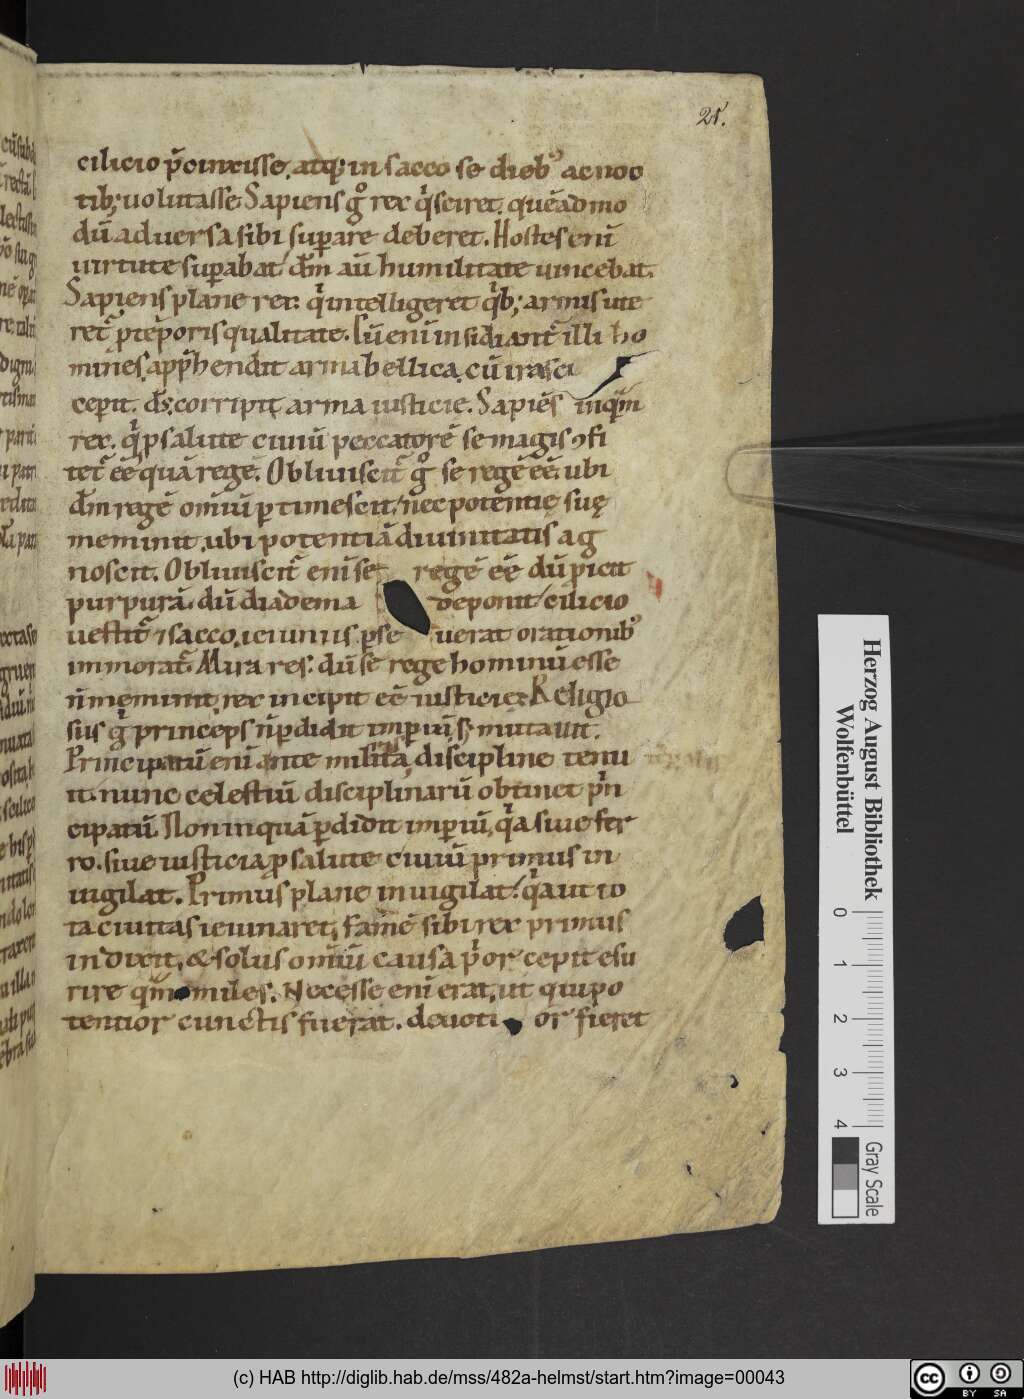 21.
cilicio p̄cinxisse. atq; in sacco se dieb᷒ ac noc
tib; uolutasse. Sapiens gͦ rex qͥ sciret. quēadmo
dū aduersa sibi sup̱are deberet. Hostes enī
uirtute sup̱abat / dm̄ aū humilitate uincebat.
Sapiens plane rex. qͥ intelligeret qͥb; armis ute
ret᷑ p̱ tēporis qualitate. Cū enī insidiant᷑ illi ho
mines. app̱hendit arma bellica. cū irasci
cep̱it. ds̄. corripit arma iusticie. Sapiēs inqͣm
rex. qͥ p̱ salute ciuiū peccatorē se magis ꝯfi
tet᷑ eē̄ quā regē. Obliuiscit᷑ gͦ se regē eē̄. ubi
dm̄ regē om̄iū p̱timescit. / nec potentię suę
meminit. ubi potentiā diuinitatis ag
noscit. Obliuiscit᷑ enī se regē eē̄ dū picit
purpurā. dū diadema deponit / cilicio
uestit᷑ ⁊ sacco. ieiuniis p̱seuerat orationib᷒
immorat᷑. Mira res. dū se rege hominū esse
n̄ meminit. rex incipit eē̄ iusticie. Religio
sus gͦ princeps n̄ p̱didit imp̱iū. s; mutauit.
Principatū enī ante militia discipline tenu
it. nunc celestiū disciplinarū obtinet pͥn
cipatū. Non inquā p̱didit imp̱iū. qͥa siue fer
ro. siue iusticia p̱ salute ciuiū primus in
uigilat. Primus plane inuigilat. / qͥa ut to
ta ciuitas ieiunaret. famē sibi rex primus
indixit. & solus om̄iū causa pͥor cepit esu
rire qͣm miles. Necesse enī erat. ut qui po
tentior cunctis fuerat. deuotior fieret
Herzog August Bibliothek
Wolfenbüttel
0 1 2 3 4
Gray Scale
(c) HAB http://diglib.hab.de/mss/482a-helmst/start.htm?image=00043
cc BY SA